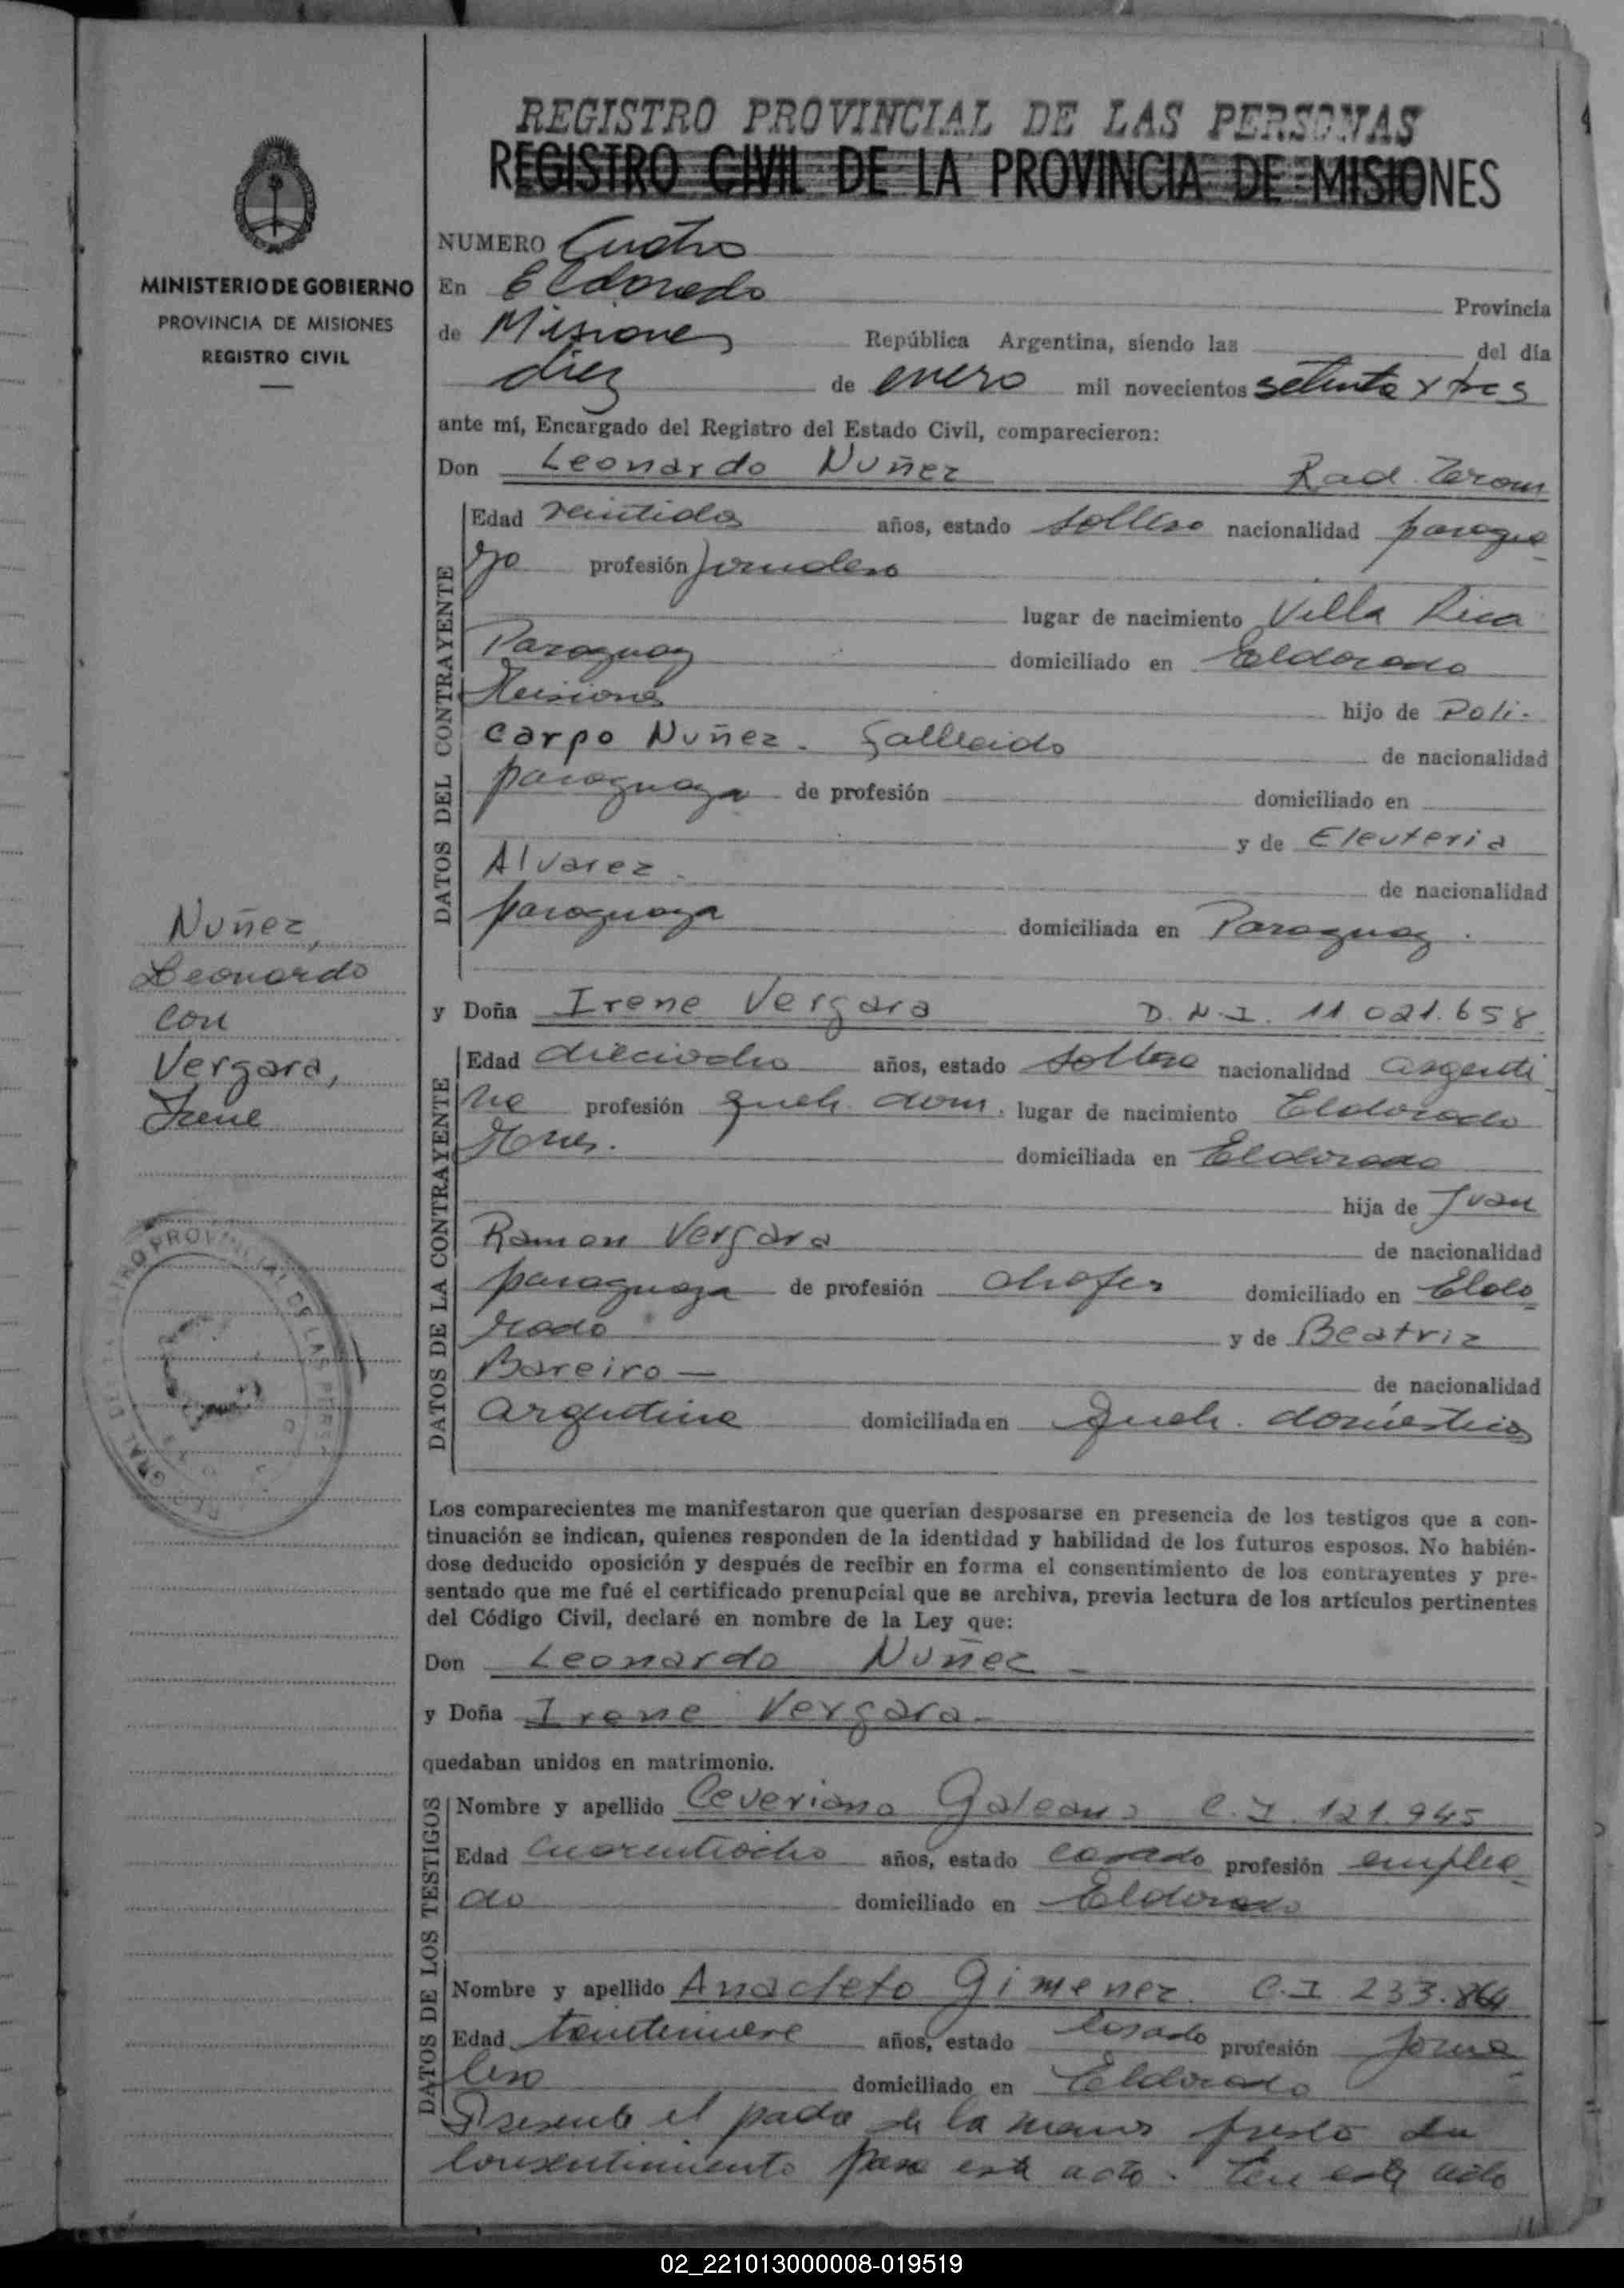 REGISTRO PROVINCIAL DE LAS PERSONAS
REGISTRO CIVIL DE LA PROVINCIA DE MISIONES
MINISTERIO DE GOBIERNO
PROVINCIA DE MISIONES
REGISTRO CIVIL
NUMERO Cuatro
En Eldorado Provincia
de Misiones República Argentina, siendo las del día
diez de enero mil novecientos setenta y tres
ante mí, Encargado del Registro del Estado Civil, comparecieron:
Don Leonardo Nuñez Rad.
DATOS DEL CONTRAYENTE
Edad veintidos años, estado soltero nacionalidad paragua-
yo profesión jornalero
lugar de nacimiento Villa Rica
Paraguay domiciliado en Eldorado
Misiones hijo de Poli-
carpo Nuñez. fallecido de nacionalidad
paraguaya de profesión domiciliado en
y de Eleuteria
Alvarez. de nacionalidad
paraguaya domiciliada en Paraguay.
Nuñez,
Leonardo
con
Vergara,
Irene
y Doña Irene Vergara D.N.I. 11.021.658
DATOS DE LA CONTRAYENTE
Edad dieciocho años, estado soltera nacionalidad argenti
na profesión queh. dom. lugar de nacimiento Eldorado
Mnes. domiciliada en Eldorado
hija de Juan
Ramon Vergara de nacionalidad
paraguaya de profesión chofer domiciliado en Eldo-
rado y de Beatriz
Bareiro — de nacionalidad
argentina domiciliada en queh. domestico
REGISTRO PROVINCIAL DE LAS PERS
Los comparecientes me manifestaron que querían desposarse en presencia de los testigos que a con-
tinuación se indican, quienes responden de la identidad y habilidad de los futuros esposos. No habién-
dose deducido oposición y después de recibir en forma el consentimiento de los contrayentes y pre-
sentado que me fué el certificado prenupcial que se archiva, previa lectura de los artículos pertinentes
del Código Civil, declaré en nombre de la Ley que:
Don Leonardo Nuñez -
y Doña Irene Vergara -
quedaban unidos en matrimonio.
DATOS DE LOS TESTIGOS
Nombre y apellido Ceveriano Galeano C.I. 121.945
Edad cuarentiocho años, estado casado profesión emplea-
do domiciliado en Eldorado
Nombre y apellido Anacleto Gimenez. C.I. 233.864
Edad treintinueve años, estado casado profesión jorna-
lero domiciliado en Eldorado
Presente el padre de la menor presto su
consentimiento para este acto. En este acto
02_221013000008-019519